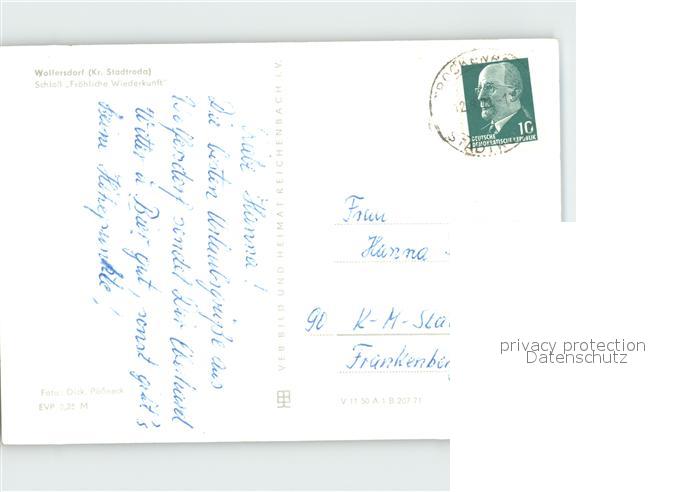 Wolfersdorf (Kr. Stadtroda)
Schloß „Fröhliche Wiederkunft"
Liebe Hanna!
Die besten Urlaubsgrüße aus
Wolfersdorf sendet Dir Eberhard
Wetter u. Bier gut, sonst gibt's
keine Höhepunkte!
Foto: Dick, Pößneck
EVP 0,25 M
VEB BILD UND HEIMAT REICHENBACH I. V.
TROCKENB
STADTR
10
DEUTSCHE
DEMOKRATISCHE REPUBLIK
Frau
Hanna
90 K-M-Sta
Frankenber
V 11 50 A 1 B 207 71
privacy protection
Datenschutz